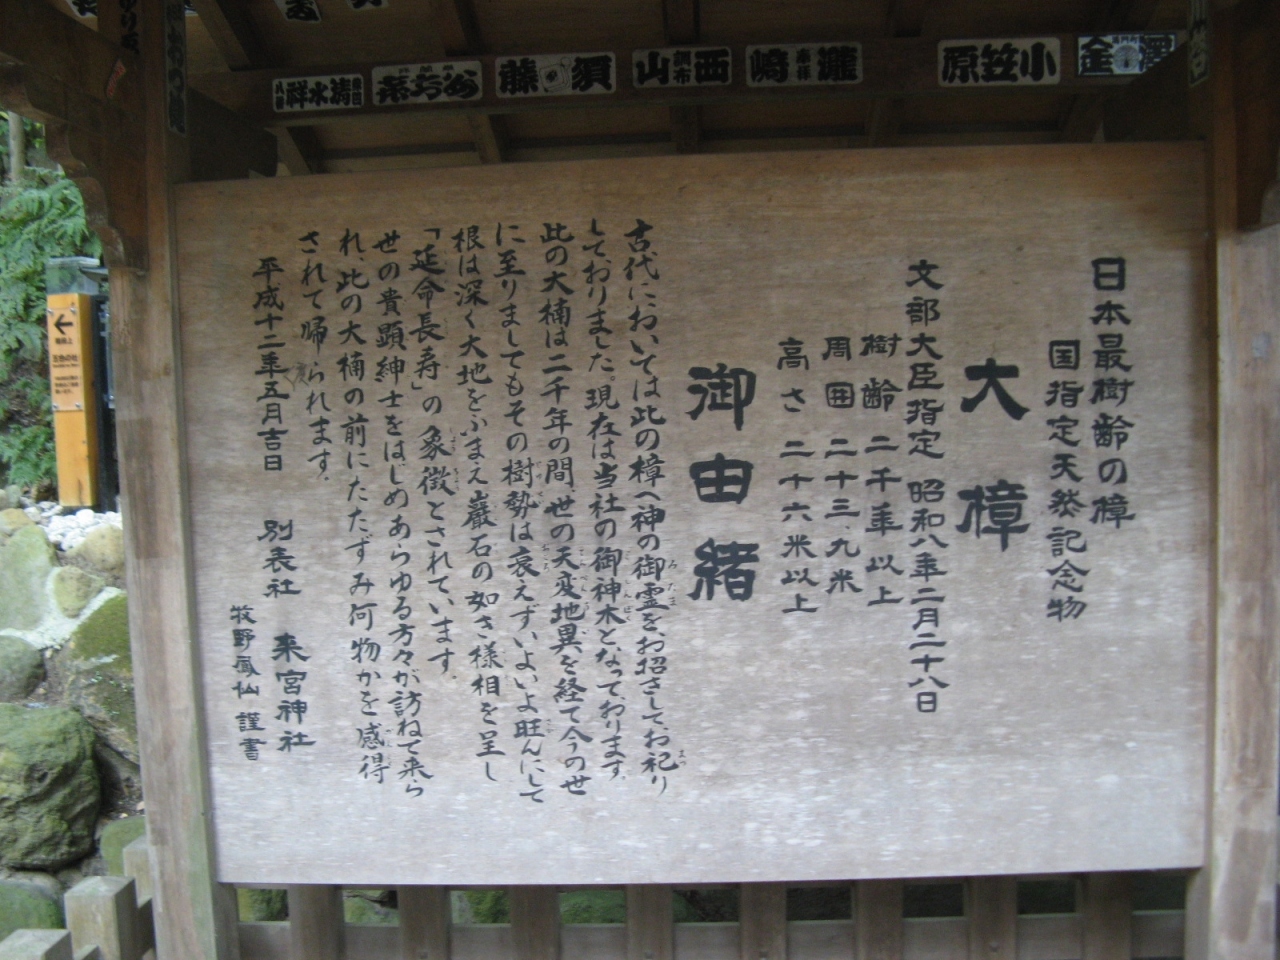 日本最樹齢の樟
国指定天然記念物
大樟
文部大臣指定 昭和八年二月二十八日
樹齢 二千年以上
周囲 二十三、九米
高さ 二十六米以上
御由緒
古代においては此の樟へ神の御霊をお招きしてお祀り
しておりました。現在は当社の御神木となっております。
此の大楠は二千年の間、世の天変地異を経て今の世
に至りましてもその樹勢は衰えず、いよいよ旺んにして
根は深く大地をふまえ巌石の如き様相を呈し
「延命長寿」の象徴とされています。
世の貴顕紳士をはじめあらゆる方々が訪ねて来ら
れ、此の大楠の前にたたずみ何物かを感得
されて帰られます。
平成十二年五月吉日 別表社 来宮神社
牧野鳳仙 謹書
小笠原
西山
調布
須藤